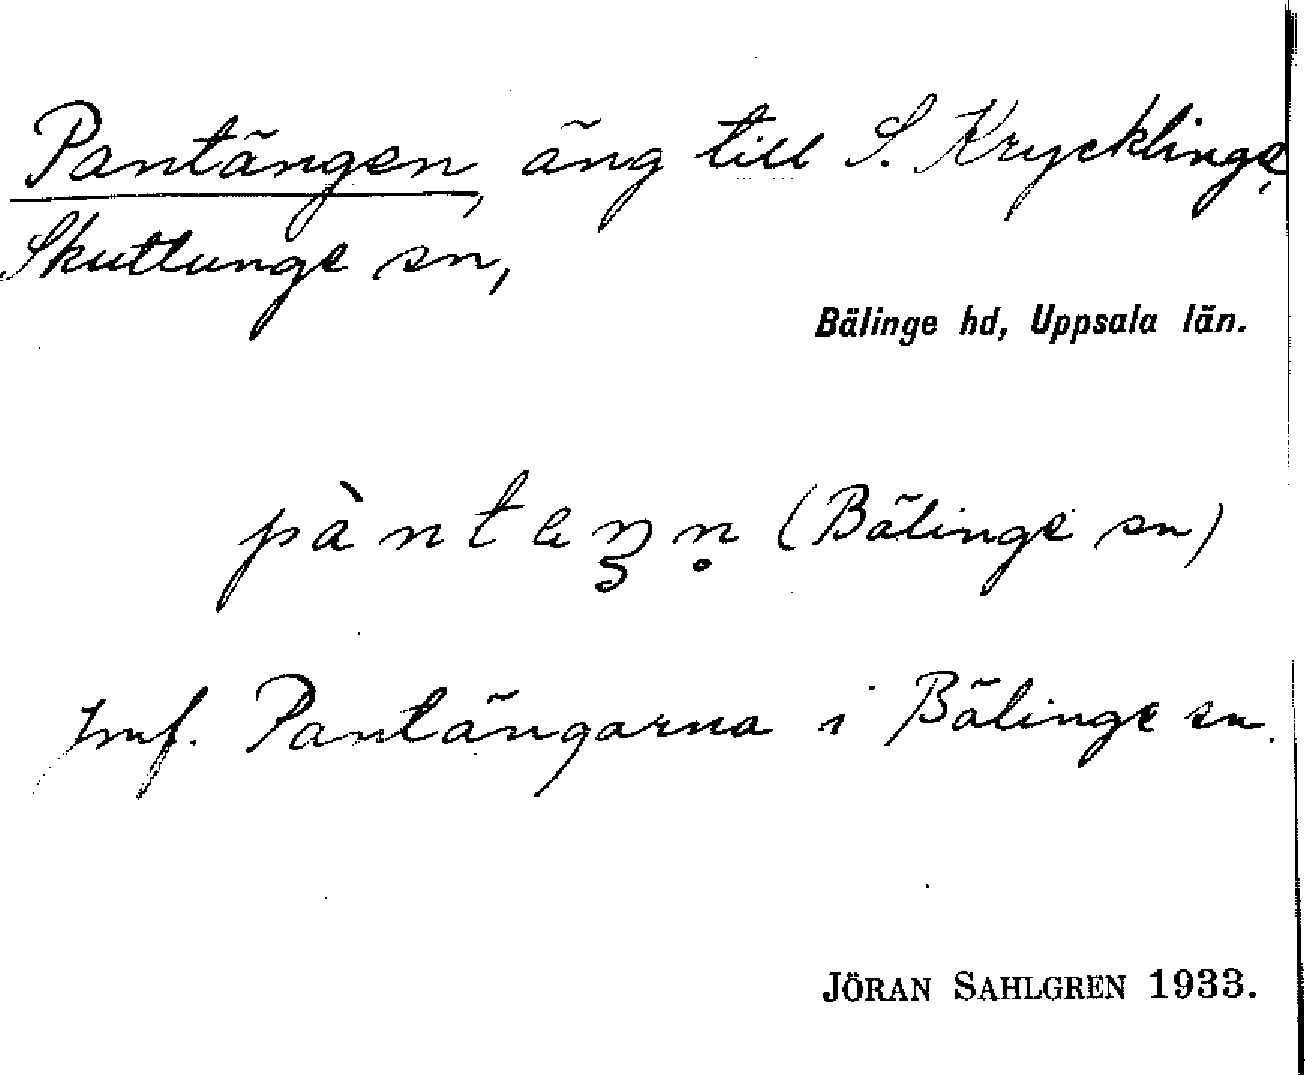 Pantängen, äng till S. Krycklinge,
Skuttunge sn,
Bälinge hd, Uppsala län.
pàntɐŋn̥ (Bälinge sn)
Jmf. Pantängarna i Bälinge sn.
JÖRAN SAHLGREN 1933.